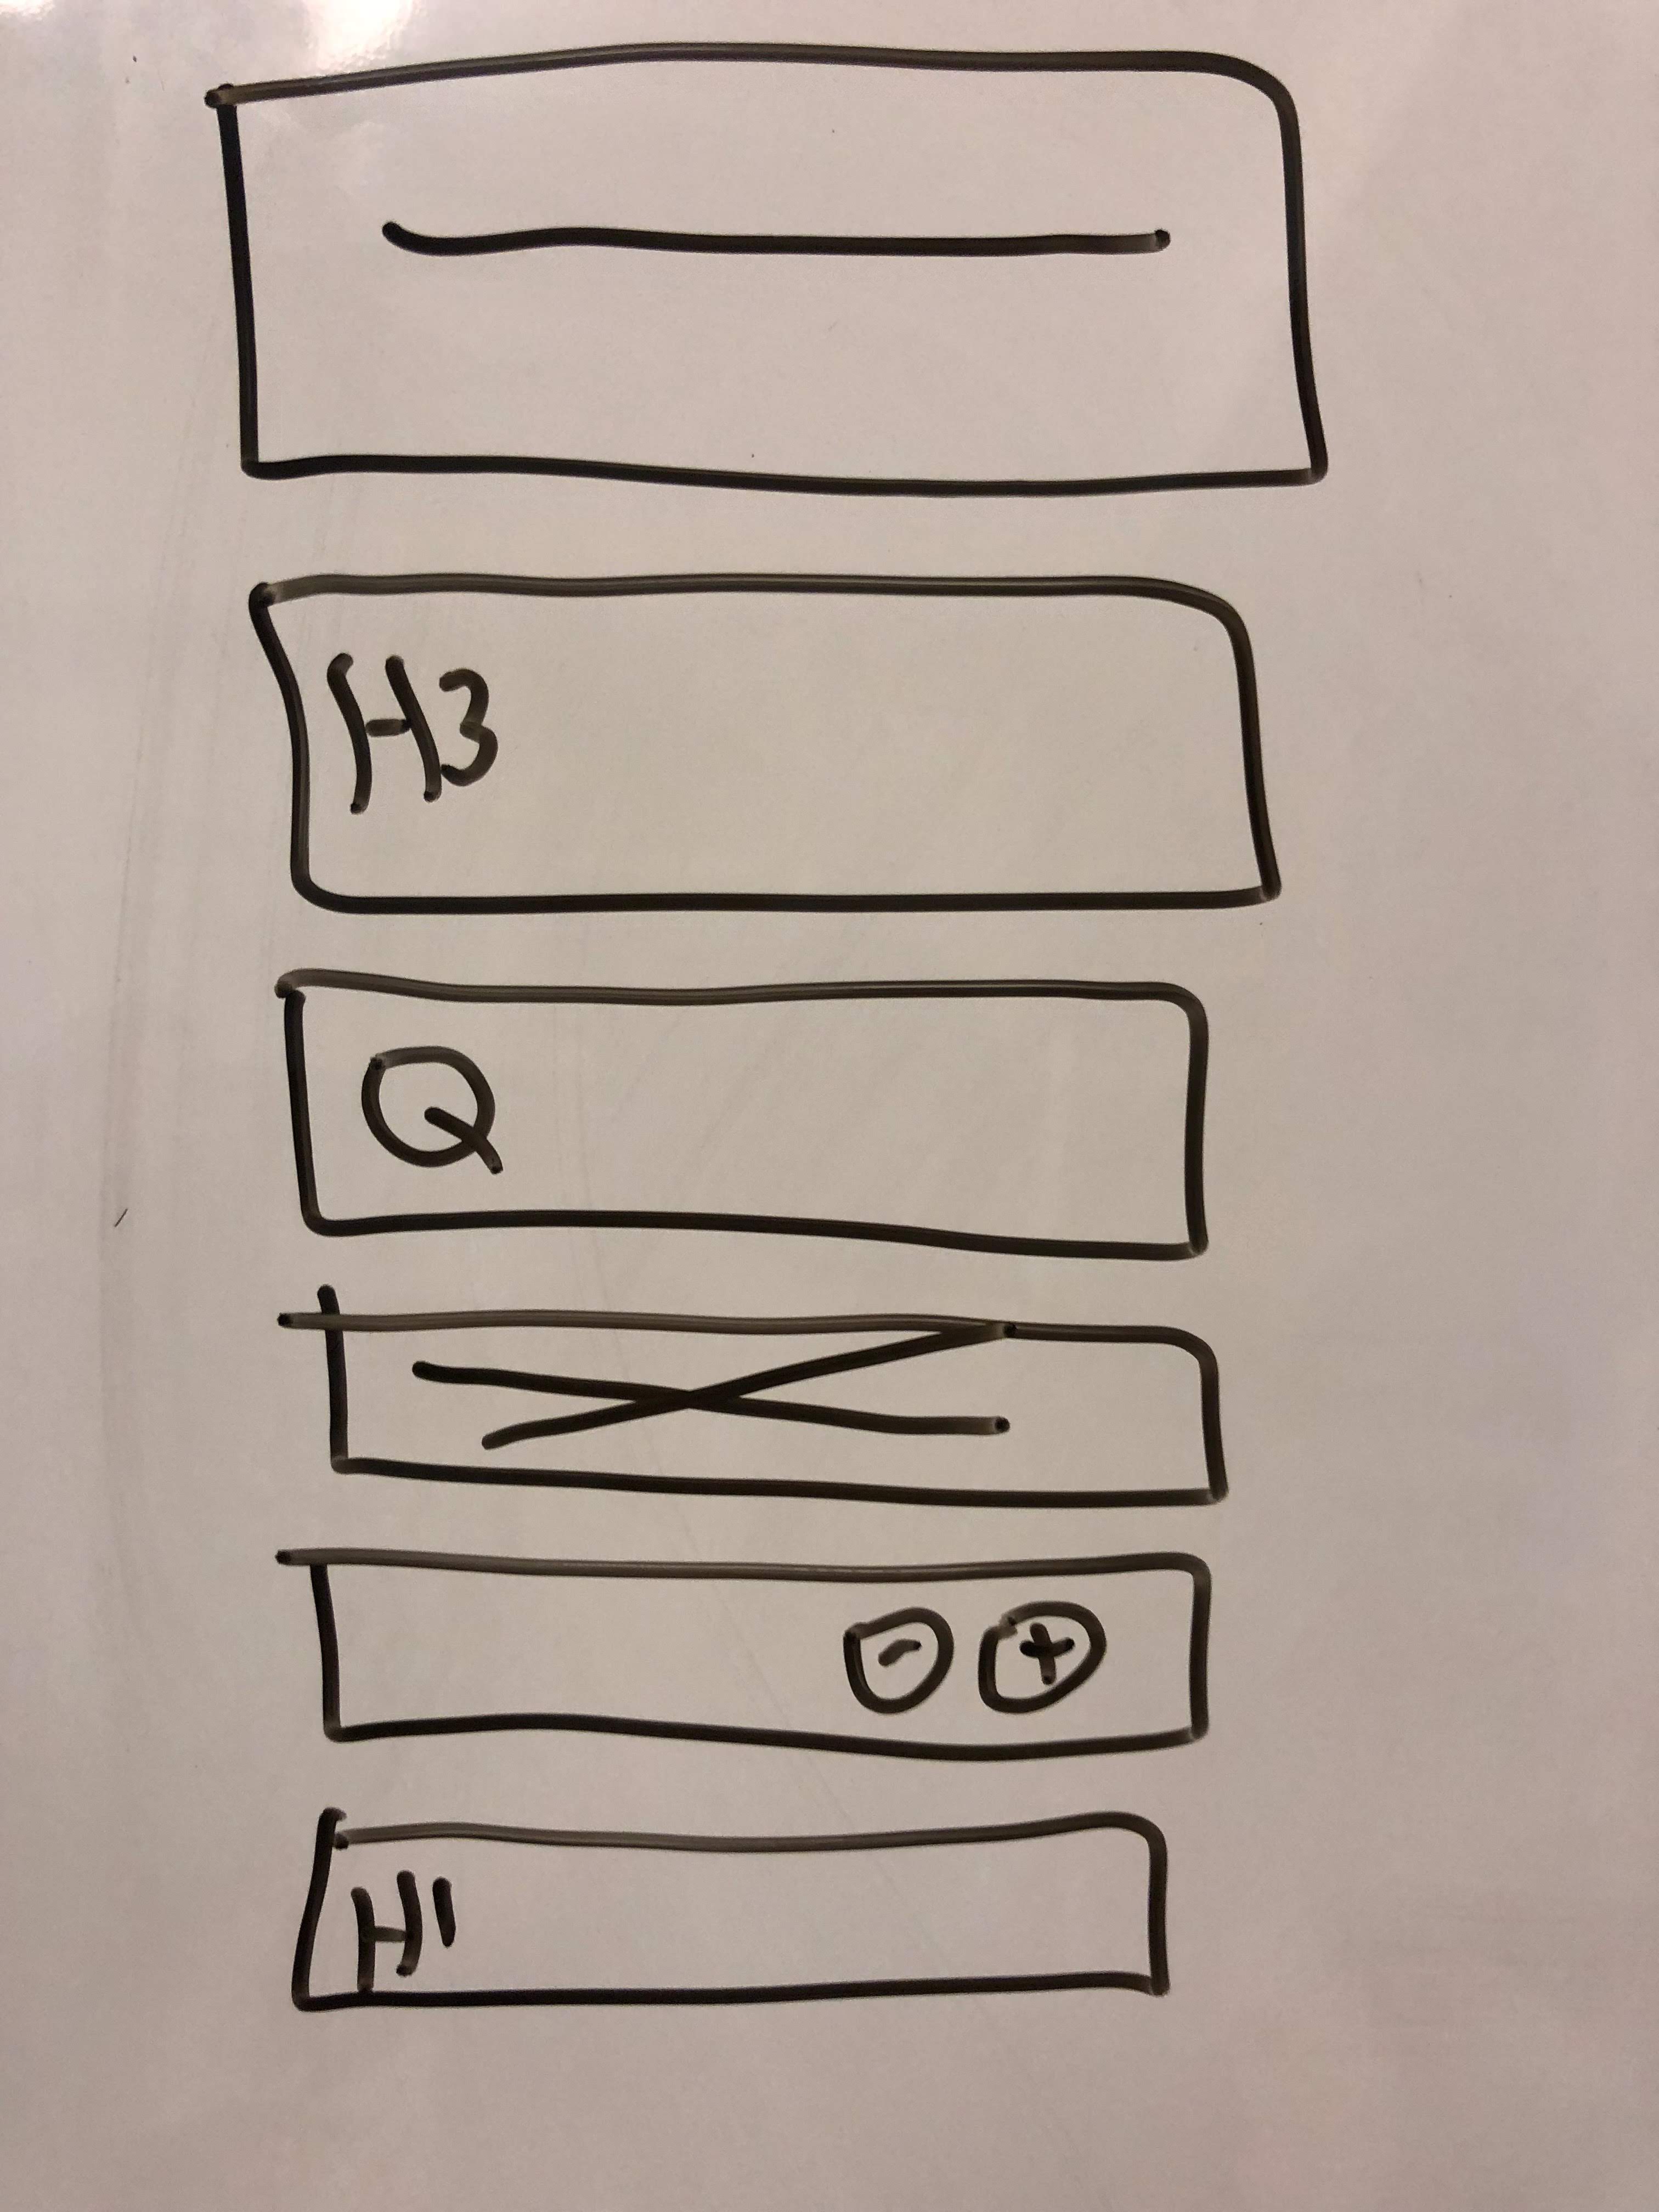 H3
Q
- +
H1